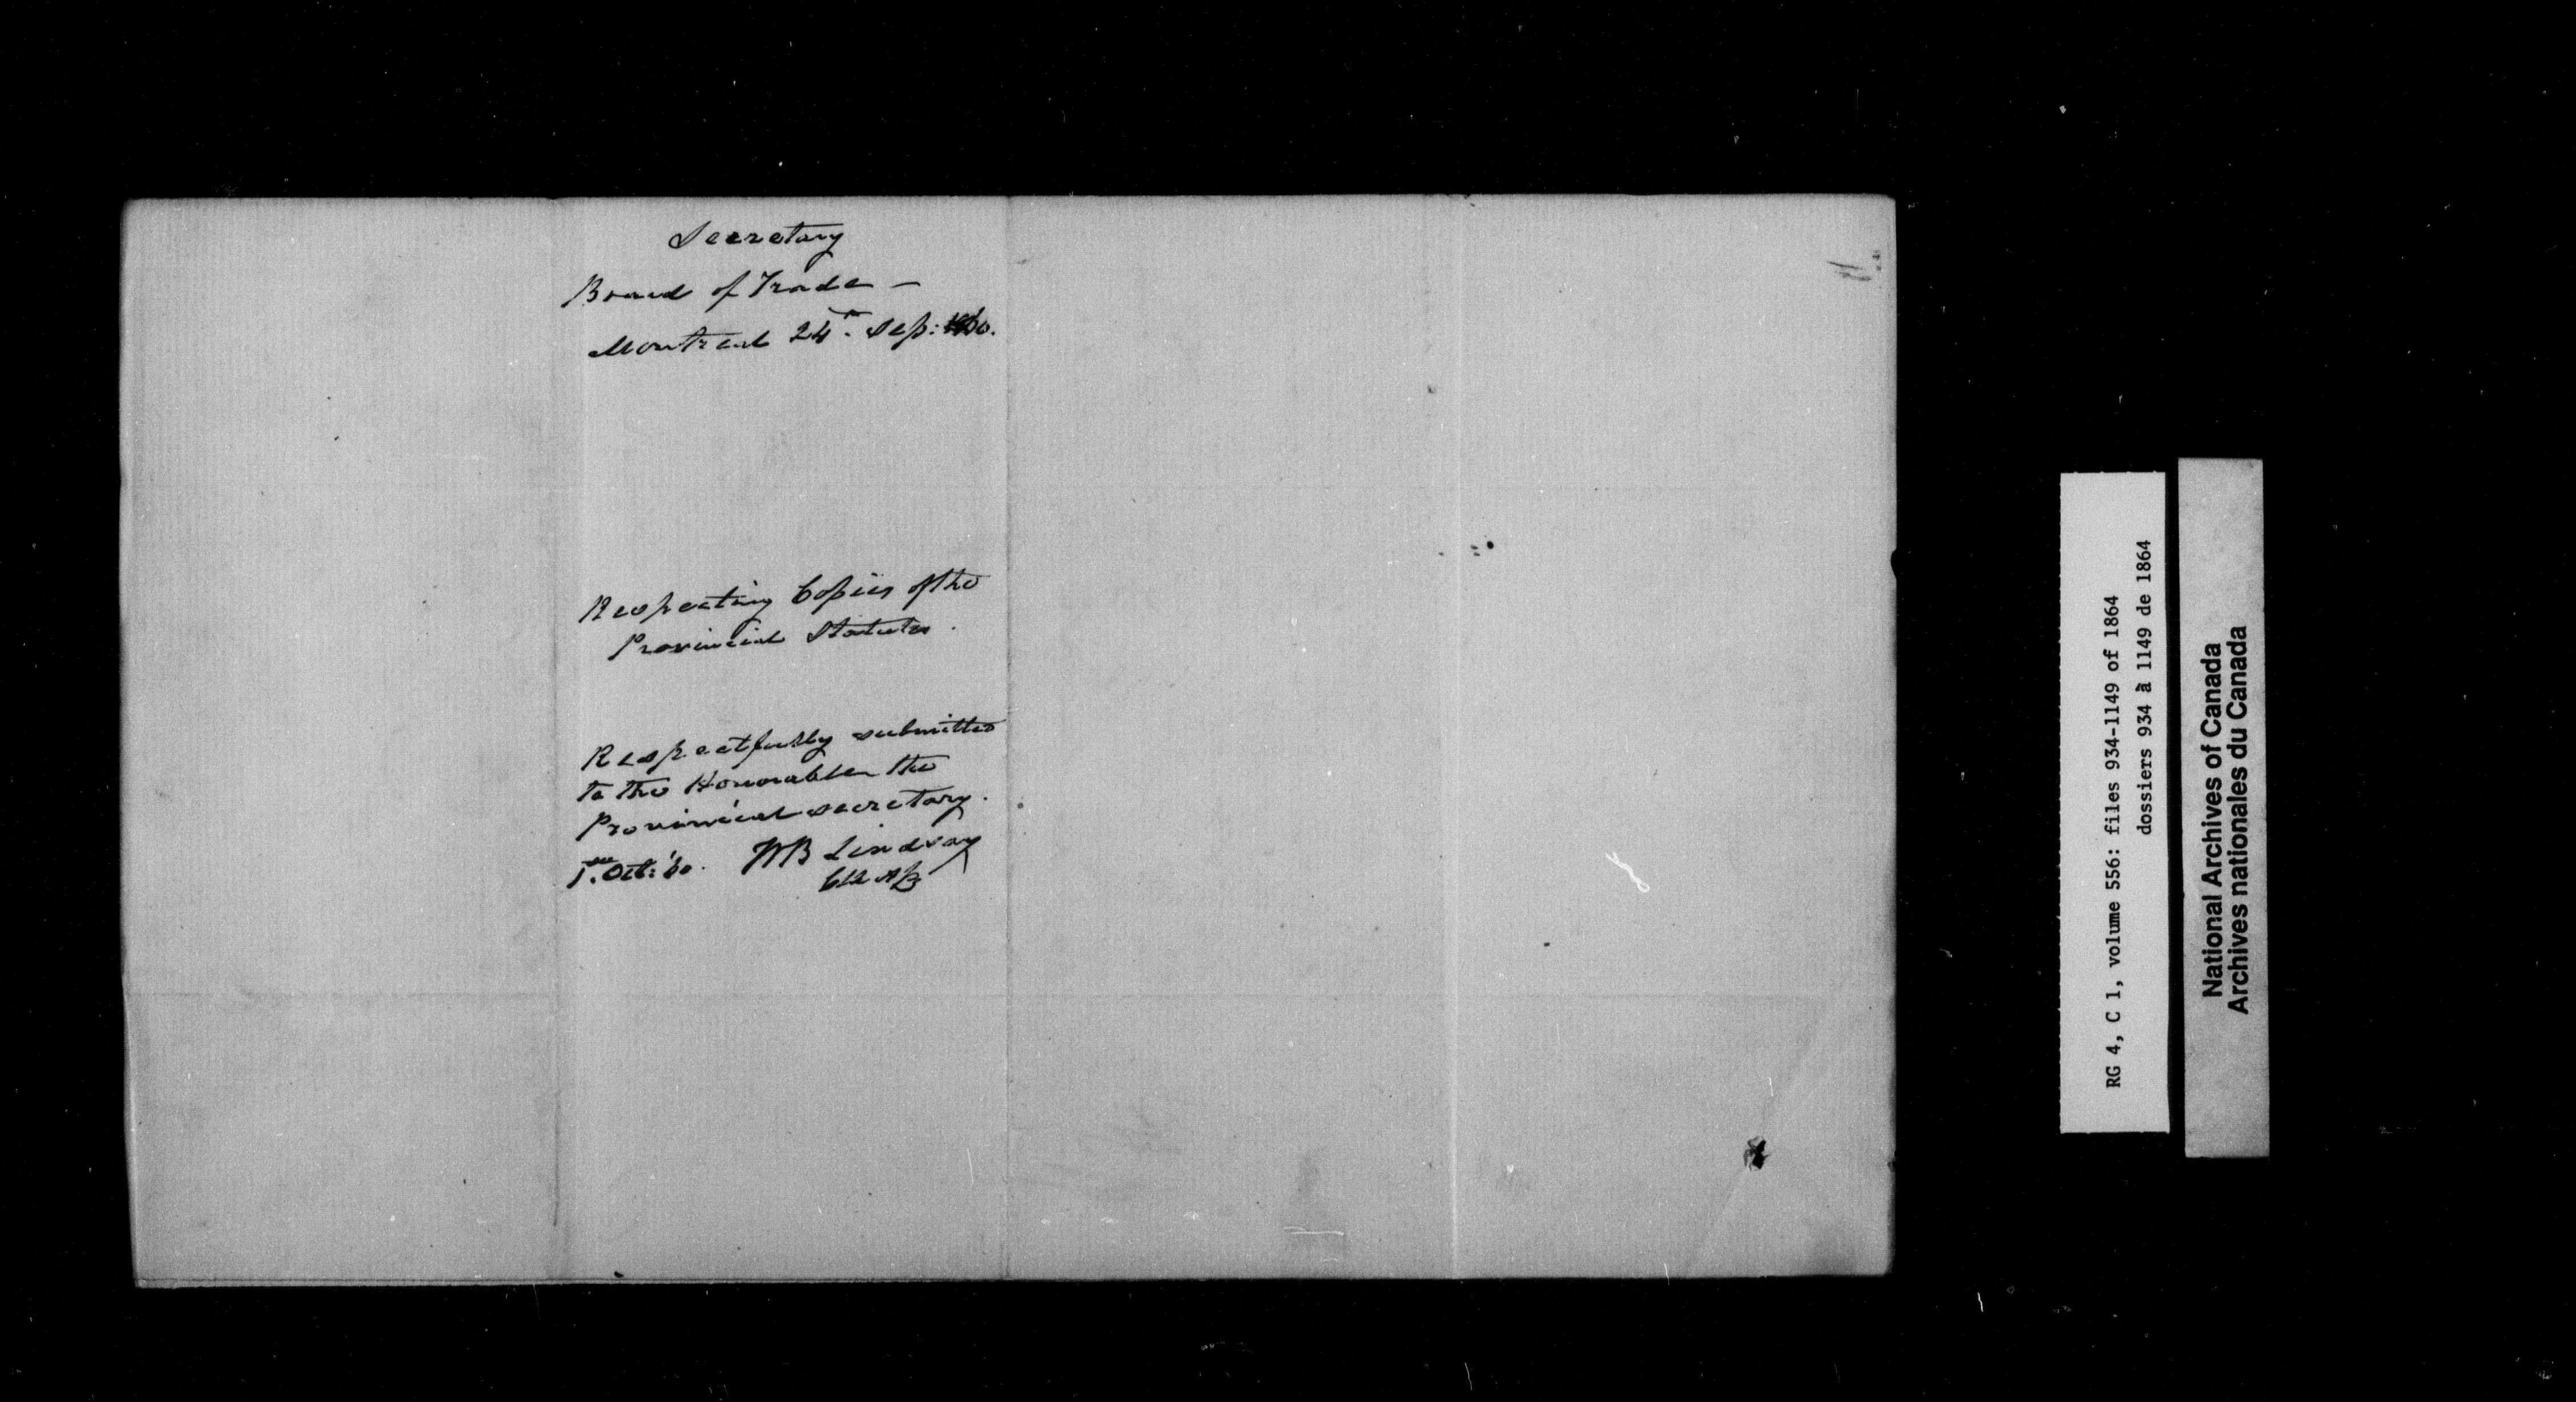 Secretary
Board of Trade —
Montreal 24th. Sep: 60.
Respecting Copies of the
Provincial Statutes.
Respectfully submitted
to the Honorable the
Provincial Secretary.
1st. Oct: '60. WB Lindsay
Clk A
RG 4, C 1, volume 556: files 934-1149 of 1864
dossiers 934 à 1149 de 1864
National Archives of Canada
Archives nationales du Canada